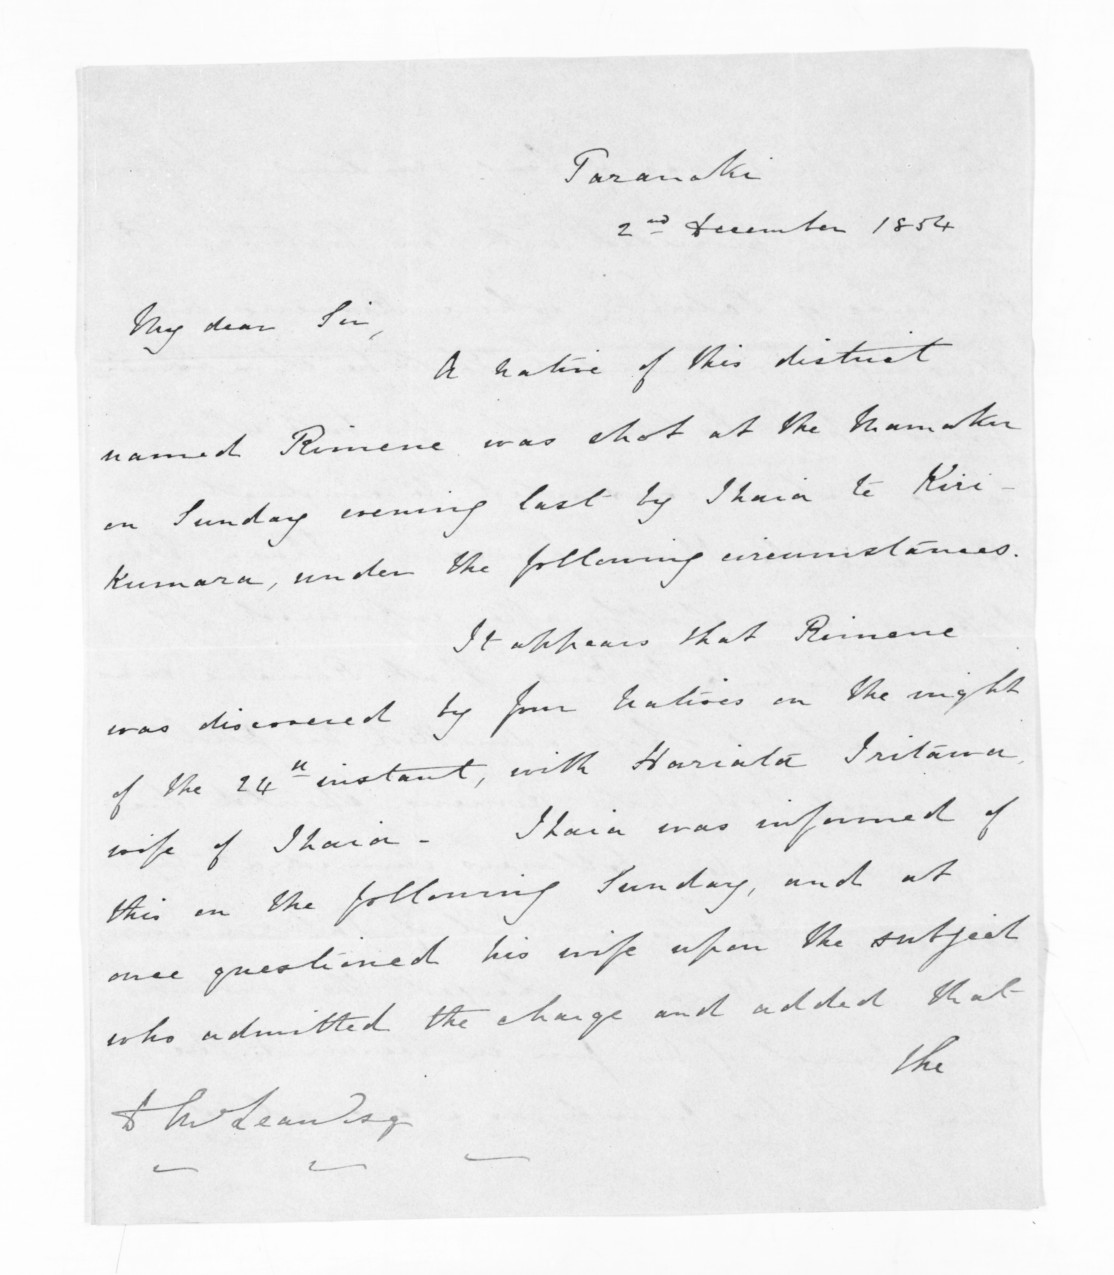 Taranaki
2nd December 1854
My dear Sir,
A native of this district
named Rimene was shot at the Mamaku
on Sunday evening last by Ihaia te Kiri-
Kumara, under the following circumstances.
It appears that Rimene
was discovered by four Natives on the night
of the 24th instant, with Hariata Iritawa,
wife of Ihaia - Ihaia was informed of
this on the following Sunday, and at
once questioned his wife upon the subject
who admitted the charge and added that
the
D McLean Esq